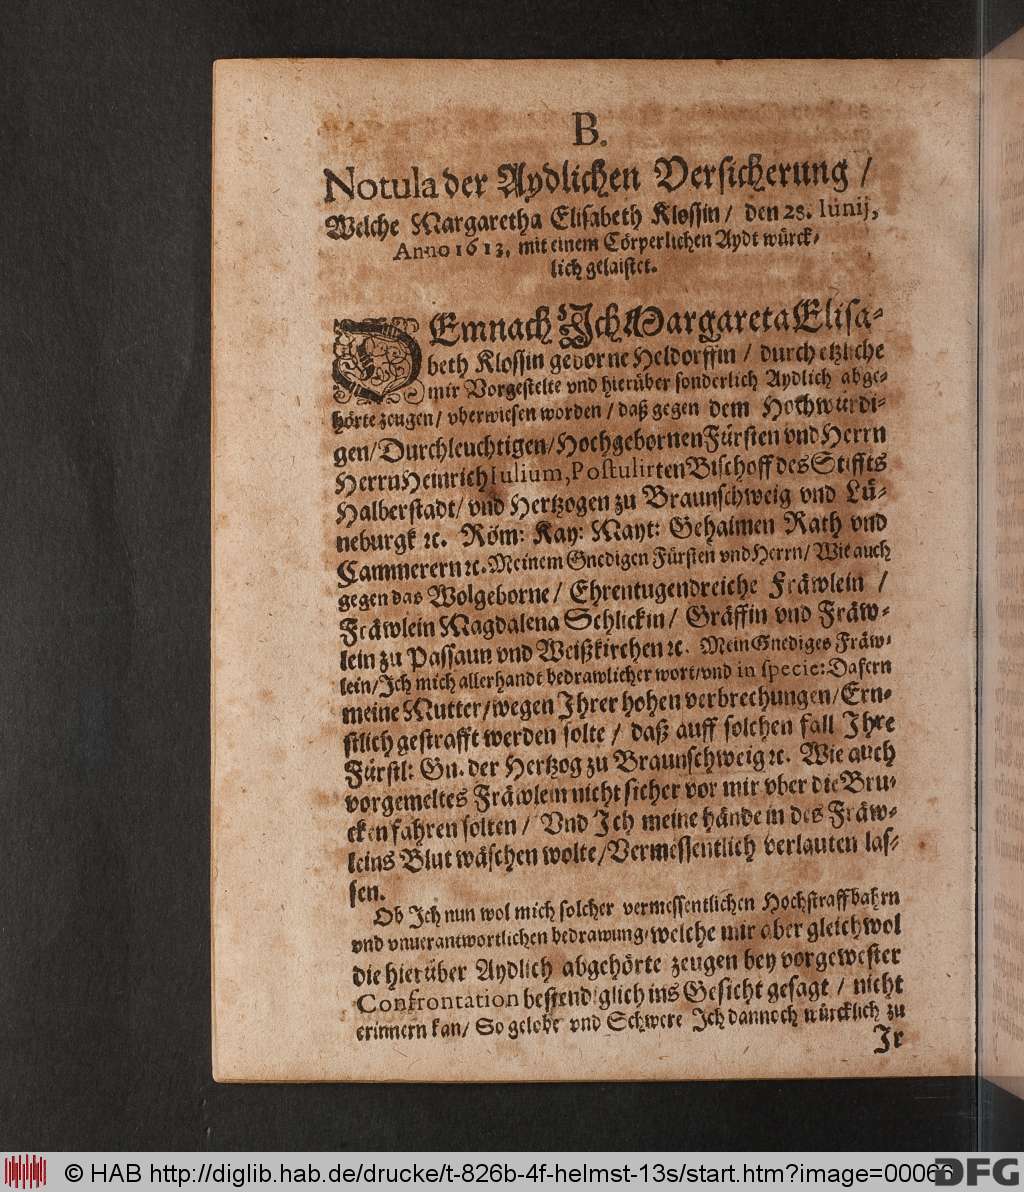 B.
Notula der Aydlichen Versicherung /
Welche Margaretha Elisabeth Klossin / den 28. Iunij,
Anno 1613. mit einem Cörperlichen Aydt würck-
lich gelaistet.
DEmnach Ich Margareta Elisa-
beth Klossin geborne Heldorffin / durch etzliche
mir Vorgestelte vnd hierüber sonderlich Aydlich abge-
hörte zeugen / vberwiesen worden / daß gegen dem Hochwürdi-
gen / Durchleuchtigen / Hochgebornen Fürsten vnd Herrn
Herrn Heinrich Iulium, Postulirten Bischoff des Stiffts
Halberstadt / vnd Hertzogen zu Braunschweig vnd Lü-
neburgk ꝛc. Röm: Kay: Mayt: Gehaimen Rath vnd
Cammerern ꝛc. Meinem Gnedigen Fürsten vnd Herrn / Wie auch
gegen das Wolgeborne / Ehrentugendreiche Fräwlein /
Fräwlein Magdalena Schlickin / Gräffin vnd Fräw-
lein zu Passaun vnd Weißkirchen ꝛc. Mein Gnediges Fräw-
lein / Ich mich allerhandt bedrawlicher wort / vnd in specie: Dafern
meine Mutter / wegen Ihrer hohen verbrechungen / Ern-
stlich gestrafft werden solte / daß auff solchen fall Ihre
Fürstl: Gn. der Hertzog zu Braunschweig ꝛc. Wie auch
vorgemeltes Fräwlein nicht sicher vor mir vber die Bru-
cken fahren solten / Vnd Ich meine hände in des Fräw-
leins Blut wäschen wolte / Vermessentlich verlauten las-
sen.
Ob Ich nun wol mich solcher vermessentlichen Hochstraffbahrn
vnd vnuerantwortlichen bedrawung / welche mir aber gleichwol
die hierüber Aydlich abgehörte zeugen bey vorgewester
Confrontation bestendiglich ins Gesicht gesagt / nicht
erinnern kan / So gelobe vnd Schwere Ich dannoch würcklich zu
Ir
© HAB http://diglib.hab.de/drucke/t-826b-4f-helmst-13s/start.htm?image=00066
DFG